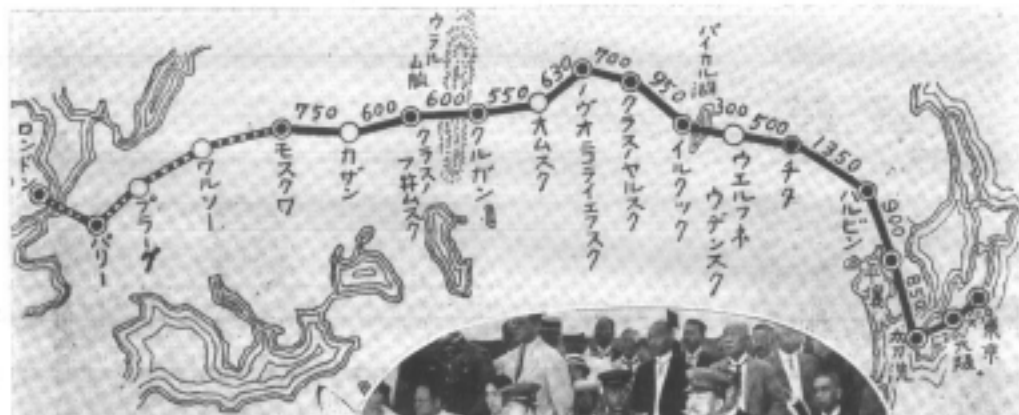 ロンドン
パリー
プラーグ
ワルソー
モスクワ
750
カザン
600
クラスノ
フ井ムスク
600
ウラル
山脈
クルガン
550
オムスク
630
ノヴオニコライエフスク
700
クラスノヤルスク
950
イルクツク
バイカル湖
300
ウエルフネ
ウデンスク
500
チタ
1350
ハルビン
900
平壌
850
大阪
東京